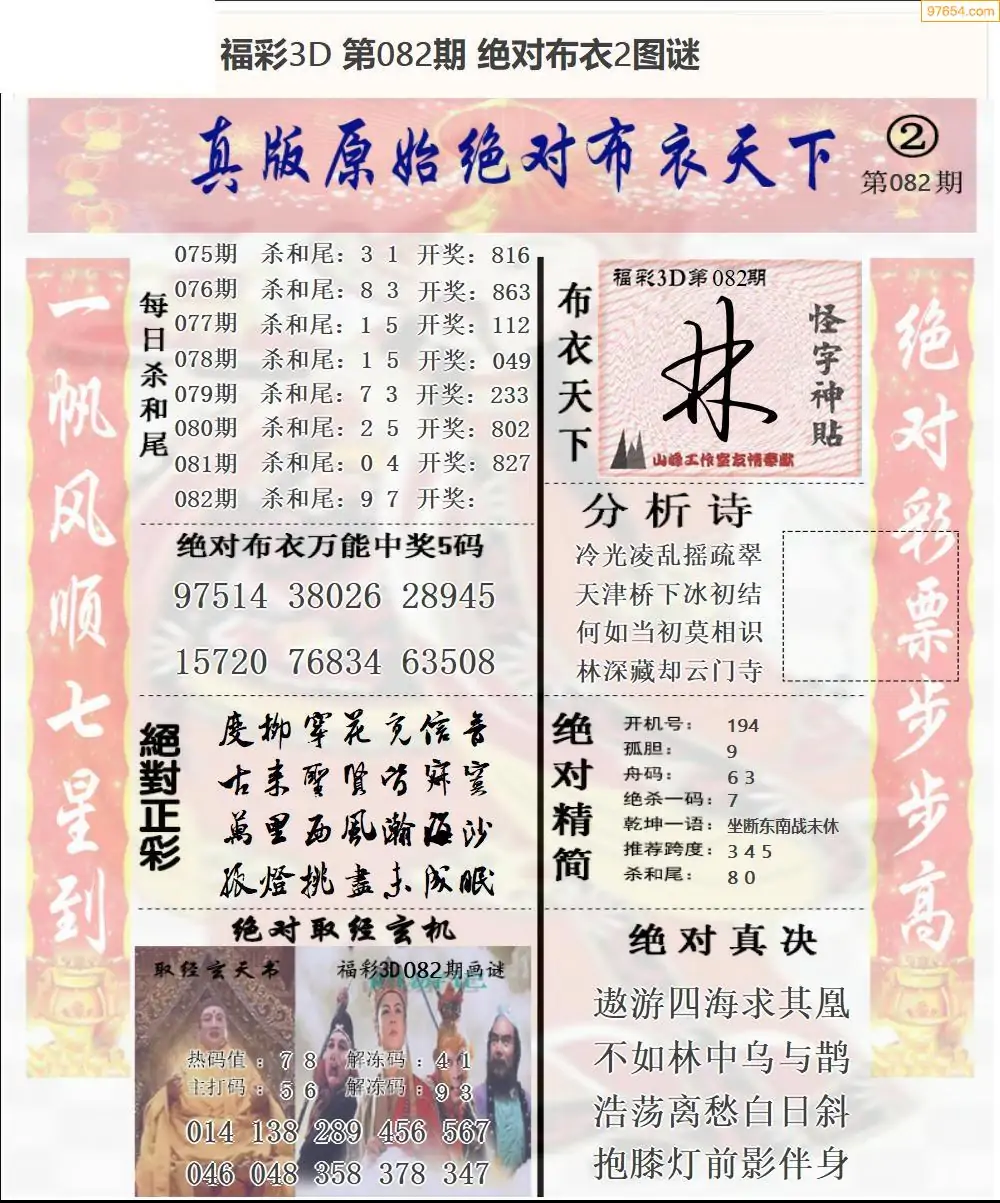 97654.com
福彩3D 第082期 绝对布衣2图谜
真版原始绝对布衣天下
②
第082期
一帆风顺七星到
每日杀和尾
075期 杀和尾：3 1 开奖：816
076期 杀和尾：8 3 开奖：863
077期 杀和尾：1 5 开奖：112
078期 杀和尾：1 5 开奖：049
079期 杀和尾：7 3 开奖：233
080期 杀和尾：2 5 开奖：802
081期 杀和尾：0 4 开奖：827
082期 杀和尾：9 7 开奖：
绝对布衣万能中奖5码
97514 38026 28945
15720 76834 63508
絕對正彩
度柳穿花觅信音
古来聖賢皆寂寞
萬里西風瀚海沙
孤燈挑盡未成眠
绝对取经玄机
取经玄天书
福彩3D082期画谜
热码值：7 8 解冻码：4 1
主打码：5 6 解冻码：9 3
014 138 289 456 567
046 048 358 378 347
布衣天下
福彩3D第082期
林
怪字神貼
山峰工作室友情奉献
分析诗
冷光凌乱摇疏翠
天津桥下冰初结
何如当初莫相识
林深藏却云门寺
绝对精简
开机号：194
孤胆：9
舟码：6 3
绝杀一码：7
乾坤一语：坐断东南战未休
推荐跨度：3 4 5
杀和尾：8 0
绝对真决
遨游四海求其凰
不如林中乌与鹊
浩荡离愁白日斜
抱膝灯前影伴身
绝对彩票步步高